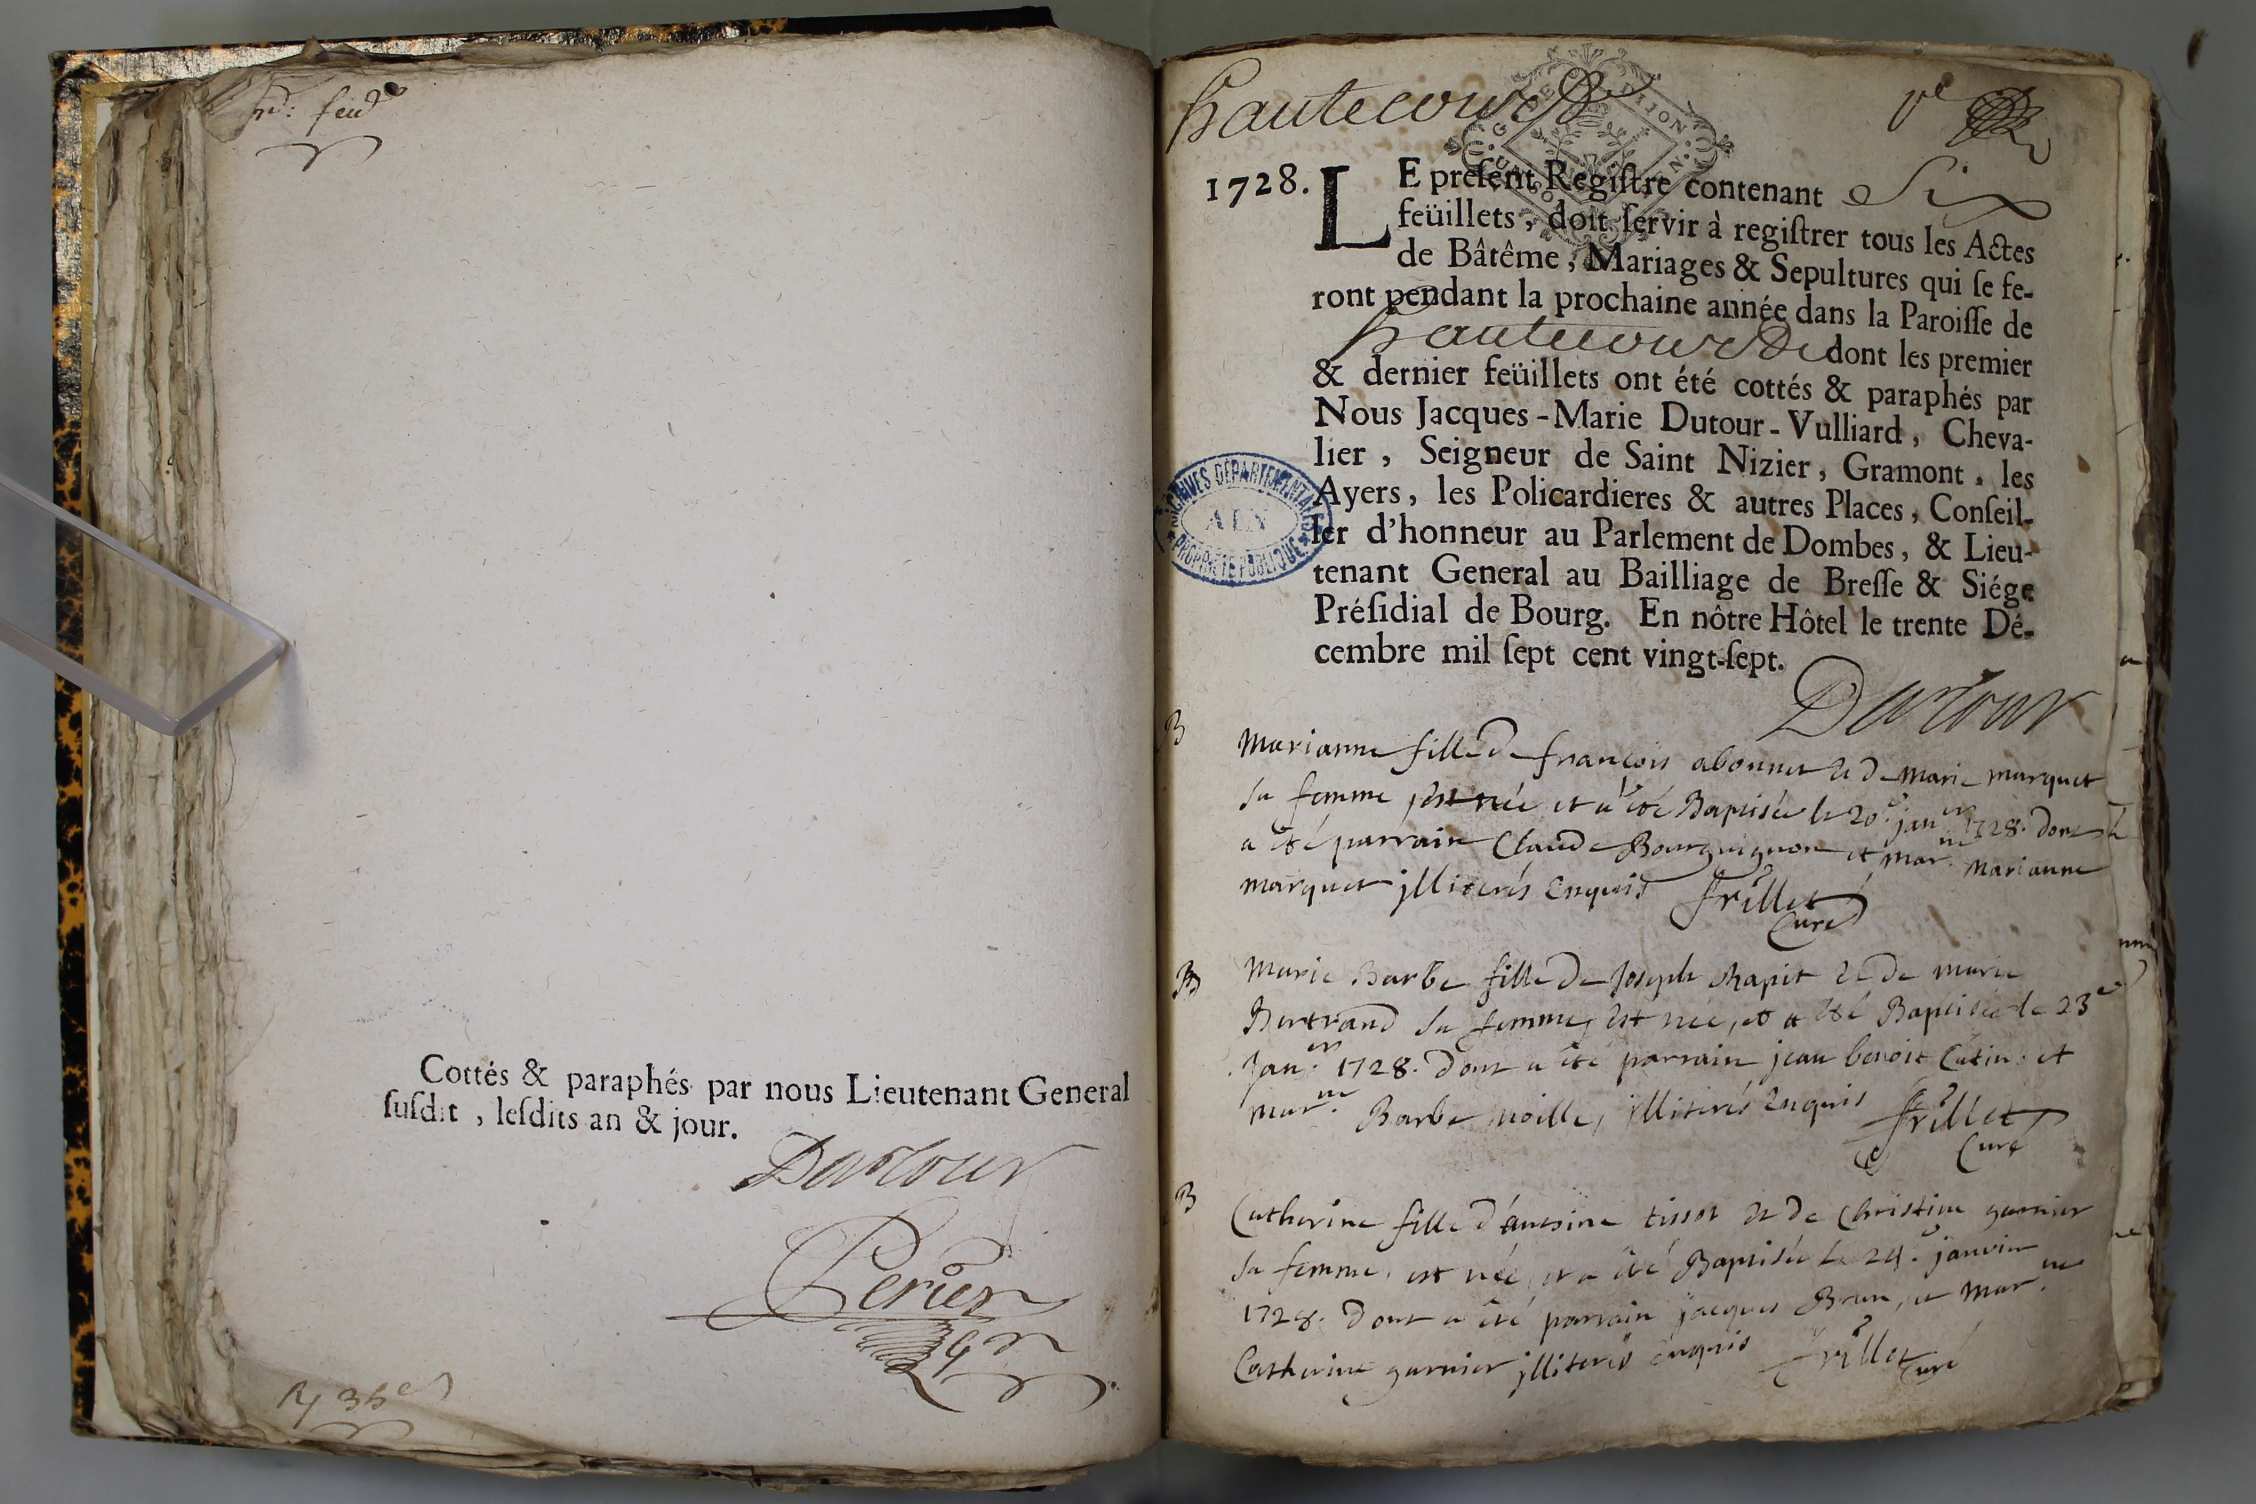 Cottés & paraphés par nous Lieutenant General
susdit, lesdits an & jour.
Dutour
Perier
hautecourt
1728.
LE present Registre contenant Six
feüillets, doit servir à registrer tous les Actes
de Bâtême, Mariages & Sepultures qui se fe-
ront pendant la prochaine année dans la Paroisse de
hautecourt dont les premier
& dernier feüillets ont été cottés & paraphés par
Nous Jacques-Marie Dutour-Vulliard, Cheva-
lier, Seigneur de Saint Nizier, Gramont, les
Ayers, les Policardieres & autres Places, Conseil-
ler d'honneur au Parlement de Dombes, & Lieu-
tenant General au Bailliage de Bresse & Siége
Présidial de Bourg. En nôtre Hôtel le trente Dé-
cembre mil sept cent vingt-sept.
Dutour
ARCHIVES DÉPARTEMENTALES
AIN
PROPRIÉTÉ PUBLIQUE
B
Marianne fille de françois abonnet & de marie marquet
sa femme est née et a été Baptisée le 20e janer 1728. dont
a été parrain Claude Bourguignon et marne Marianne
marquet illiterés enquis frillet
Curé
B
Marie Barbe fille de Joseph chapit & de marie
Bertrand sa femme, est née, et a été Baptisée le 23e
Janer 1728. dont a été parrain jean benoit Cutin et
marne Barbe noille, illiterés enquis frillet
Curé
B
Catherine fille d'antoine tissot & de Christine garnier
sa femme, est née, et a été Baptisée le 24e janvier
1728. dont a été parrain jacques Brun, et marne
Catherine garnier illiterés enquis frillet
Curé